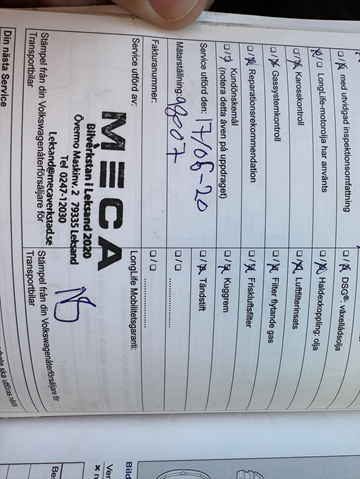 □/☒ med utvidgad inspektionsomfattning
□/☒ DSG®: växellådsolja
☒/□ LongLife-motorolja har använts
□/☒ Haldexkoppling: olja
□/☒ Karosskontroll
□/☒ Luftfilterinsats
□/☒ Gassystemkontroll
□/☒ Filter flytande gas
□/☒ Reparationsrekommendation
□/☒ Friskluftsfilter
□/☒ Kundönskemål
(notera detta även på uppdraget)
□/☒ Kuggrem
Service utförd den: 17/06-20
□/☒ Tändstift
Mätarställning:
□/□
Fakturanummer:
□/□
Service utförd av:
LongLife Mobilitetsgaranti:
MECA
Bilverkstan i Leksand 2020
Övermo Maskinv. 2 79335 Leksand
Tel 0247-12030
Leksand@mecaverkstad.se
Stämpel från din Volkswagenåterförsäljare för
Transportbilar
Stämpel från din Volkswagenåterförsäljare för
Transportbilar
Din nästa Service